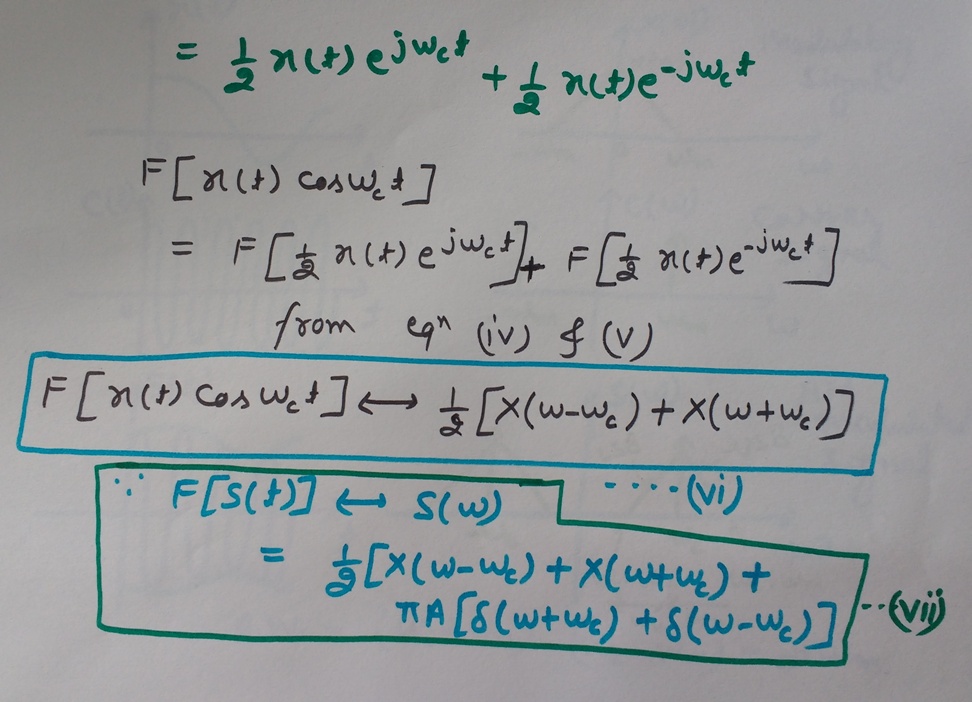 = 1/2 x(t) e^{jω_c t} + 1/2 x(t) e^{-jω_c t}
F[x(t) cos ω_c t]
= F[1/2 x(t) e^{jω_c t}] + F[1/2 x(t) e^{-jω_c t}]
from eqⁿ (iv) & (v)
F[x(t) Cos ω_c t] ↔ 1/2 [X(ω-ω_c) + X(ω+ω_c)]
∵ F[S(t)] ↔ S(ω) ....(vi)
= 1/2 [X(ω-ω_c) + X(ω+ω_c) +
πA [δ(ω+ω_c) + δ(ω-ω_c)] ..(vii)